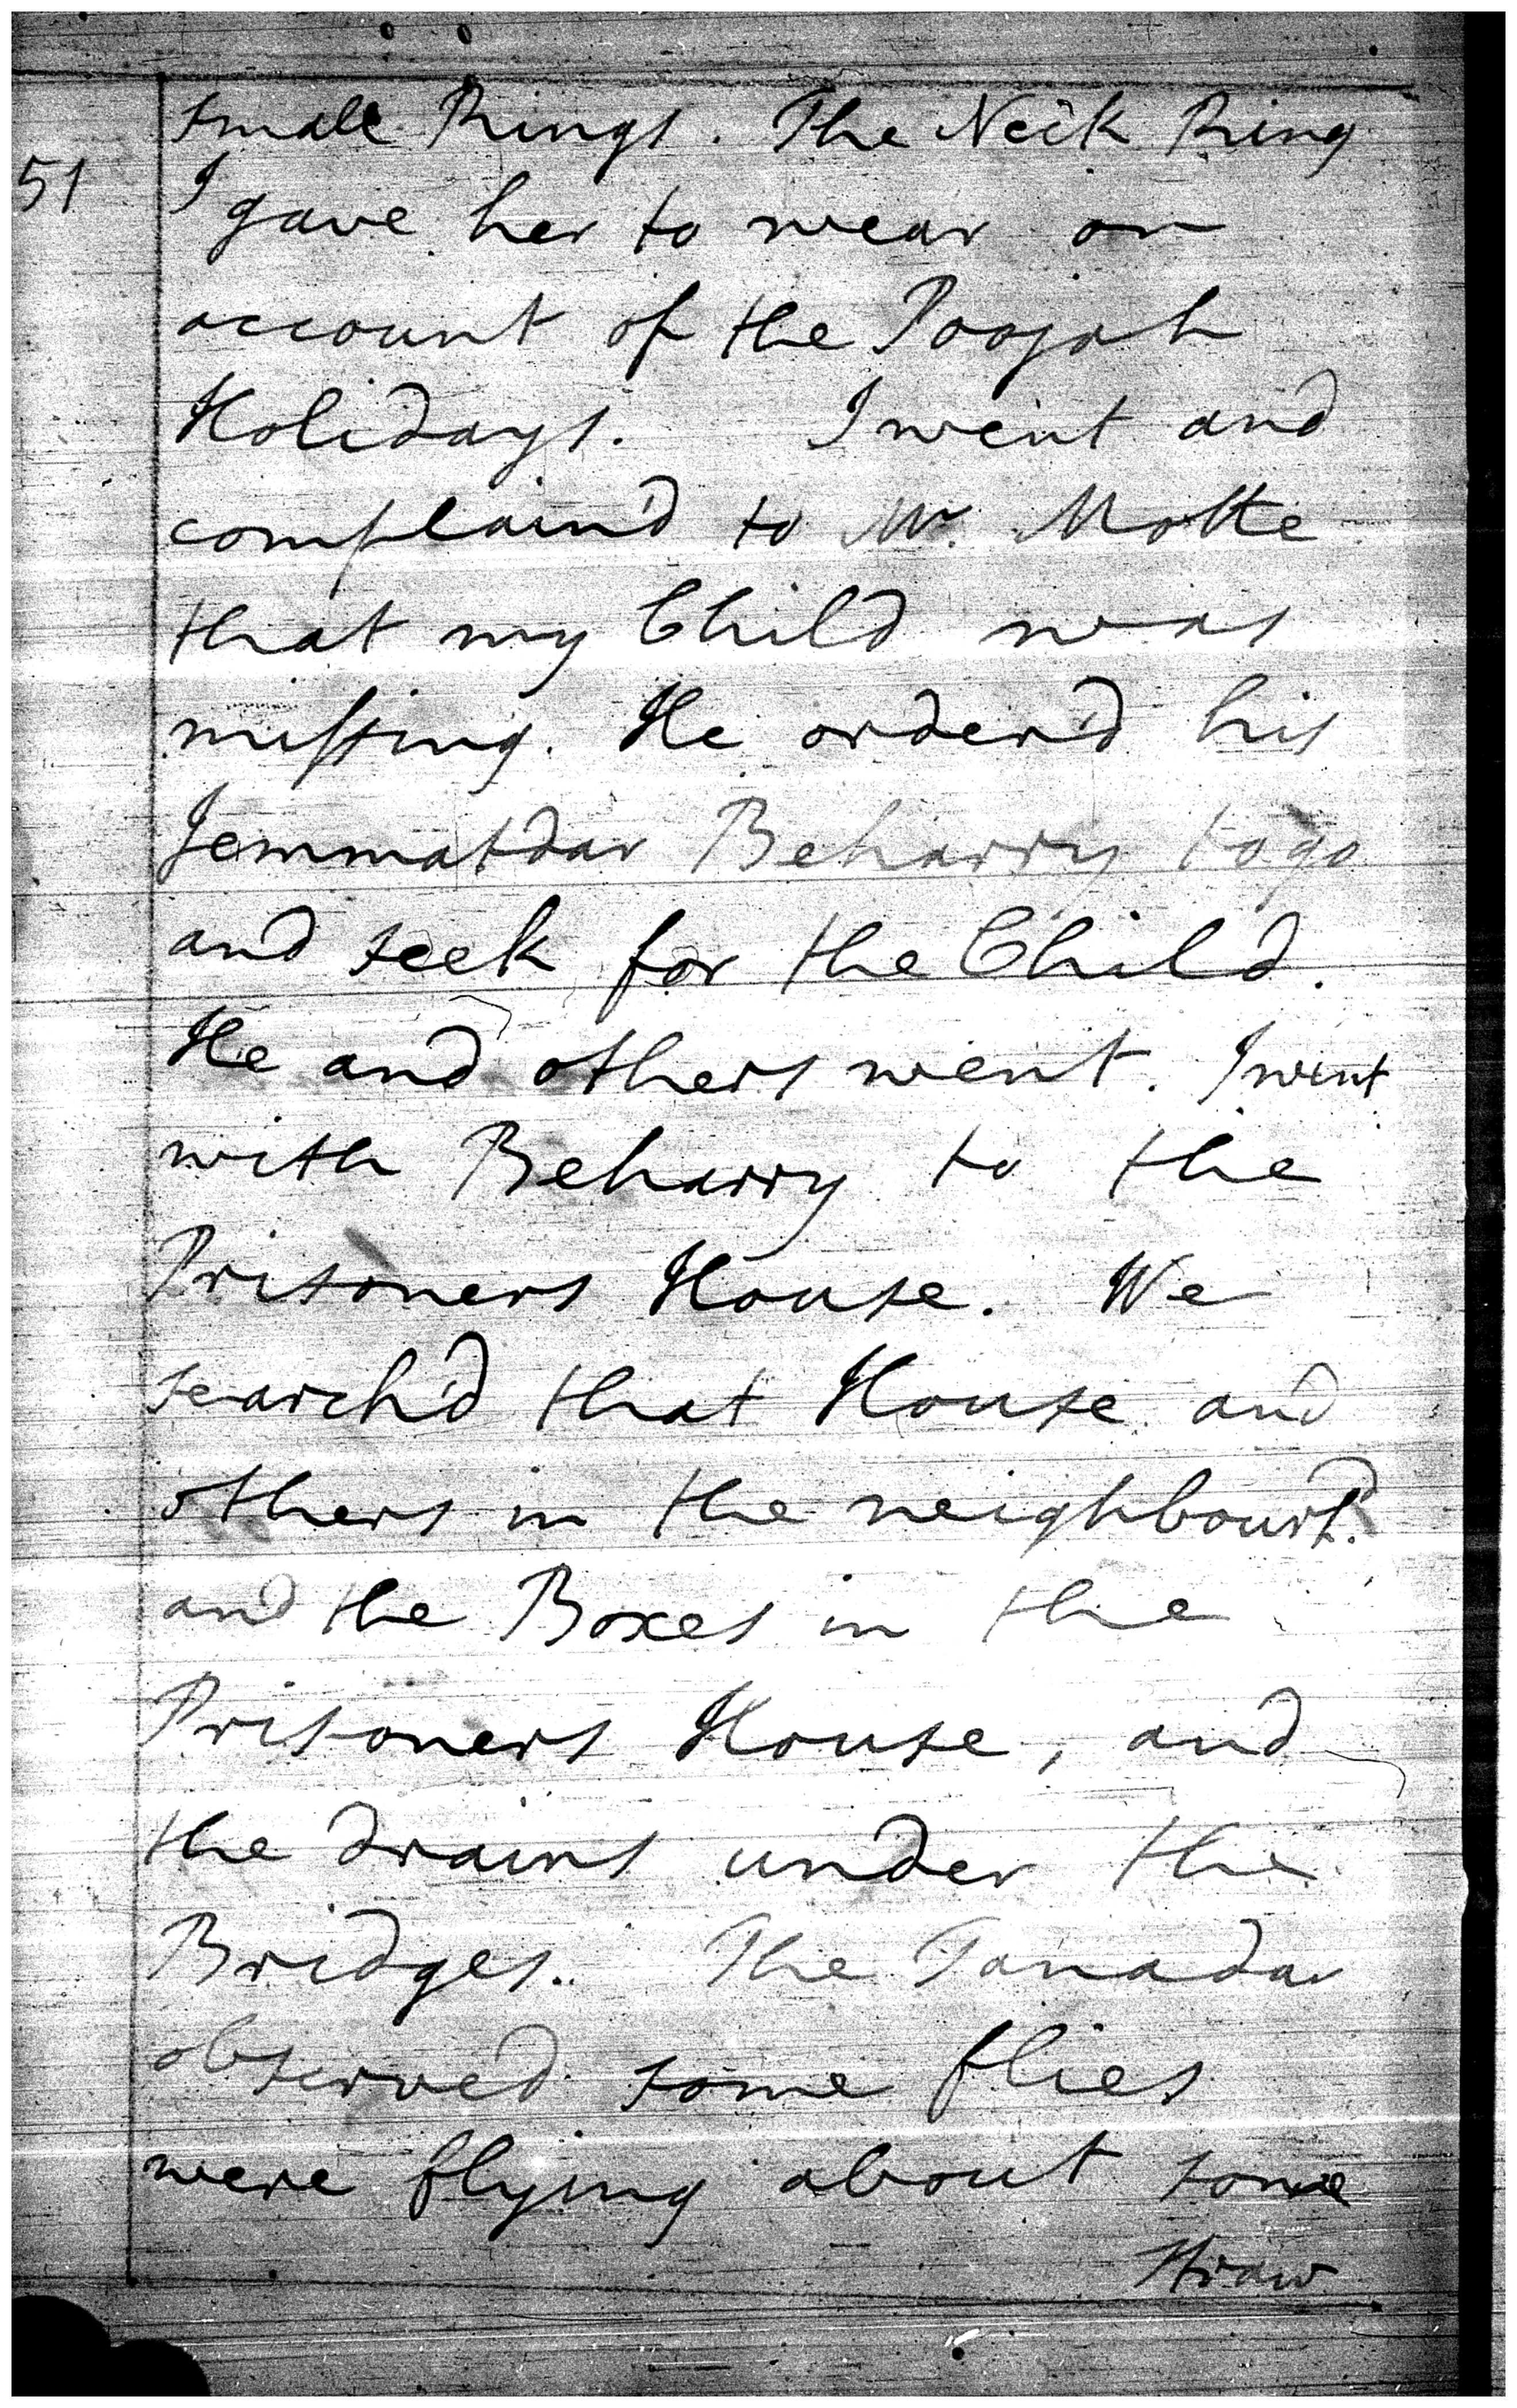 small Rings. The Neck Ring
51
I gave her to wear on
account of the Poojah
Holidays. I went and
complain'd to Mr. Motte
that my Child was
missing. He order'd his
Jemmatdar Beharry to go
and seek for the Child.
He and others went. I went
with Beharry to the
Prisoners House. We
search'd that House and
others in the neighbourhd.
and the Boxes in the
Prisoners House, and
the drains under the
Bridges. The Tanadar
observed some flies
were flying about some
straw